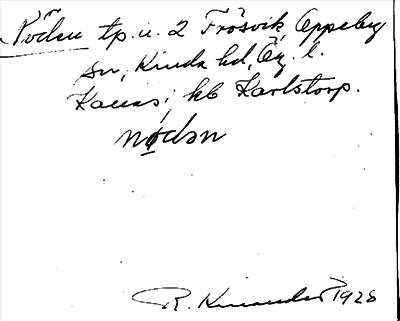 Nöden tp. u. 2 Frösvik, Oppeby
sn, Kinda hd, Ög. l.
Kallas; kb Karlstorp.
nødən
R. Kinander 1928